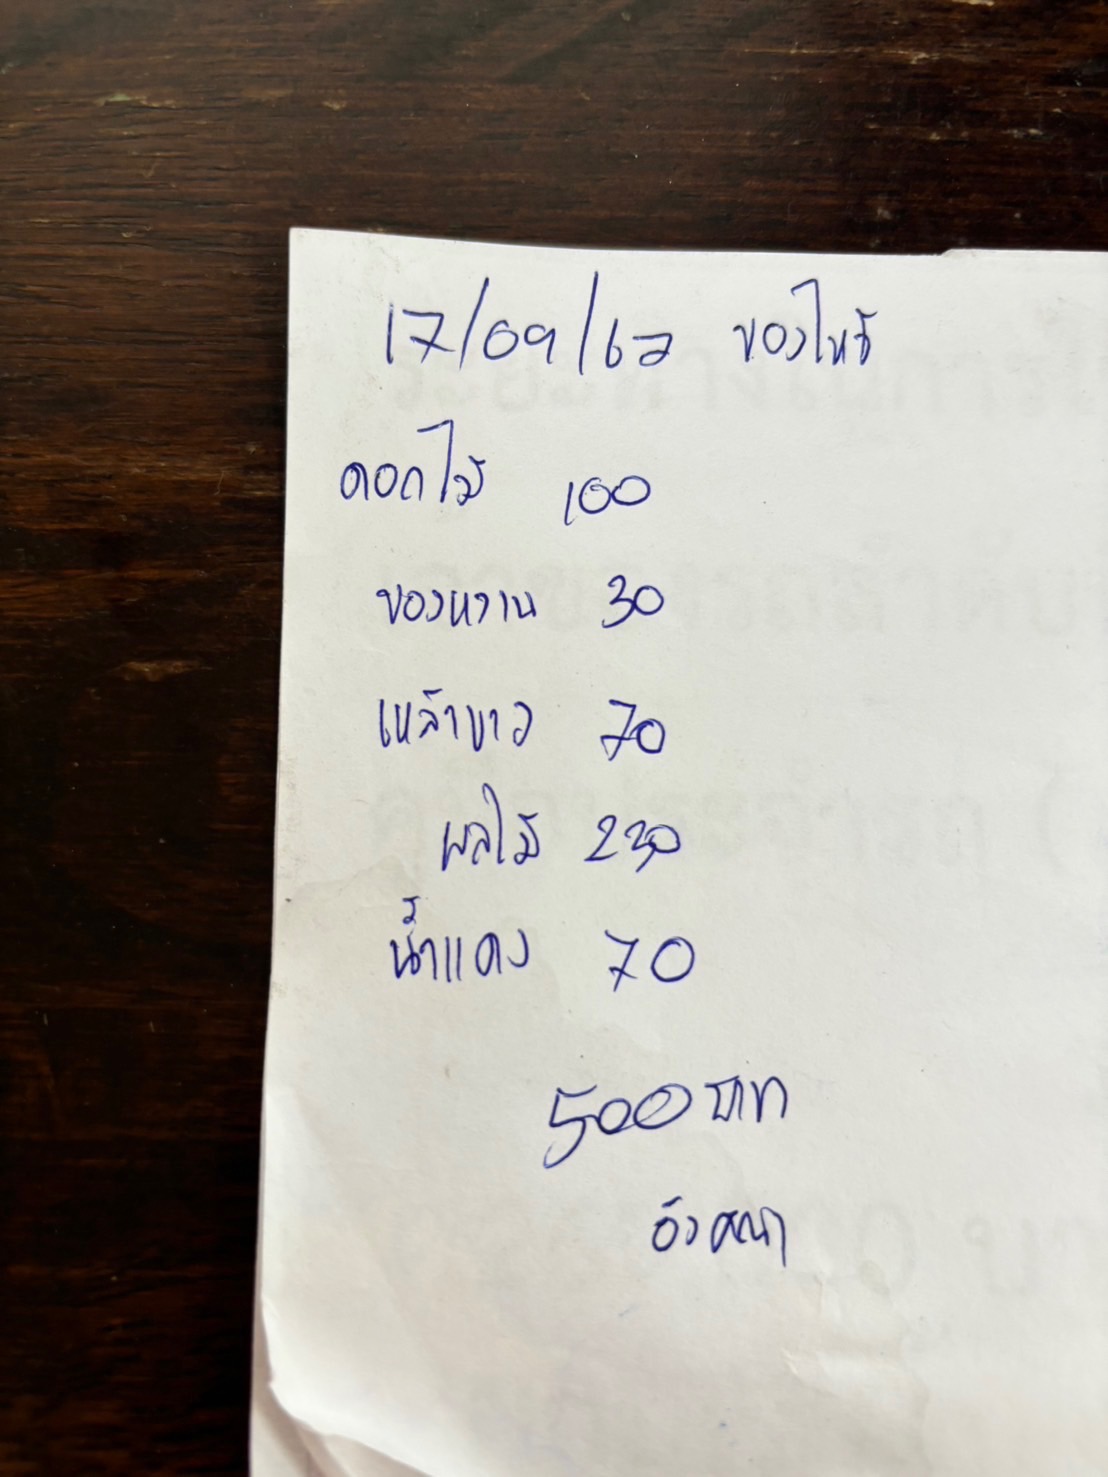 17/09/67 ของไหว้
ดอกไม้ 100
ของหวาน 30
เหล้าขาว 70
ผลไม้ 230
น้ำแดง 70
500 บาท
อังคณา